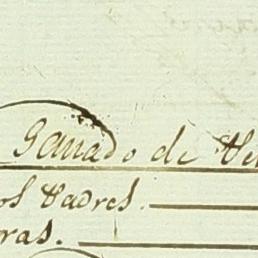 Ganado de Ve
os Padres.
ras.